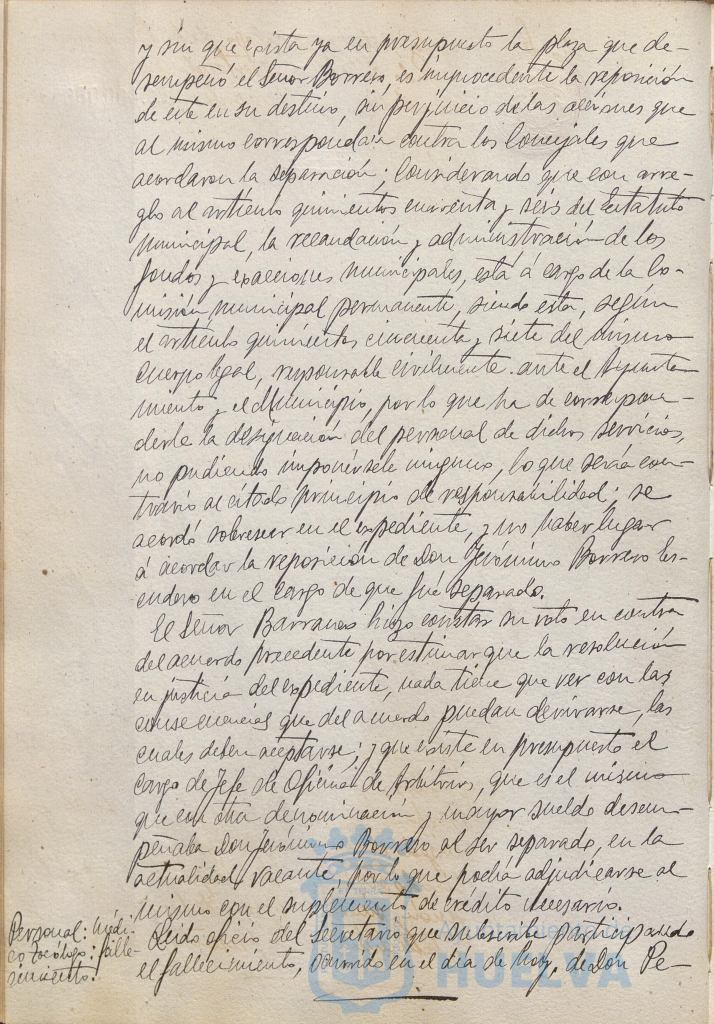 y sin que exista ya en presupuesto la plaza que de-
sempeñó el Señor Borrero, es improcedente la reposición
de este en su destino, sin perjuicio de las acciones que
al mismo correspondan contra los Concejales que
acordaron la separación; Considerando que con arre-
glo al artículo quinientos cincuenta y seis del Estatuto
Municipal, la recaudación y administración de los
fondos y exacciones municipales, está á cargo de la Co-
misión municipal permanente, siendo esta, según
el artículo quinientos cincuenta y siete del mismo
cuerpo legal, responsable civilmente ante el Ayunta-
miento y el Municipio, por lo que ha de correspon-
derle la designación del personal de dichos servicios,
no pudiendo imponérsele ninguno, lo que sería con-
trario al citado principio de responsabilidad; se
acordó sobreseer en el expediente, y no haber lugar
á acordar la reposición de Don Jerónimo Borrero Les-
endero en el cargo de que fué separado.
El Señor Barranco hizo constar su voto en contra
del acuerdo precedente por estimar que la resolución
en justicia del expediente, nada tiene que ver con las
consecuencias que del acuerdo puedan derivarse, las
cuales deben aceptarse; y que existe en presupuesto el
cargo de Jefe de Oficina de Arbitrios, que es el mismo
que con otra denominación y mayor sueldo desem-
peñaba Don Jerónimo Borrero al ser separado, en la
actualidad vacante, por lo que podría adjudicarse al
mismo con el suplemento de crédito necesario.
Personal: Médi-
co Tocólogo: falle-
cimiento.
Leido oficio del Secretario que subscribe participando
el fallecimiento, ocurrido en el día de hoy, de Don Pe-
HUELVA